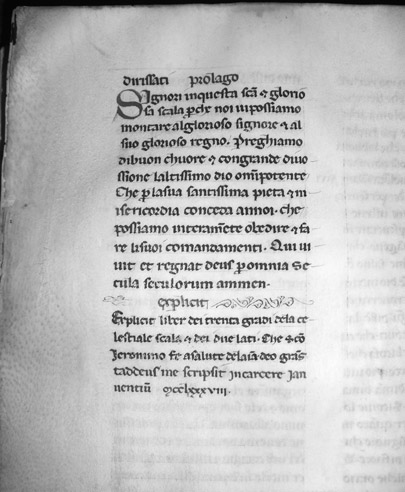 dirissati prolago
Signori inquesta scā & glorio
sa scala ꝑche noi ui possiamo
montare alglorioso signore & al
suo glorioso regno. Preghiamo
dibuon chuore & congrande diuo
ssione laltissimo dio omīpotente
Che ꝑ lasua santissima pieta & m
isericordia conceta annoi. che
possiamo interamēte obedire & fa
re lisuoi comandamenti. Qui ui
uit et regnat deus ꝑ omnia se
cula seculorum ammen.
explicit
Explicit liber dei trenta gradi dela ce
lestiale scala & dei due lati. Che Scō
Jeronimo fe asalute delaīa deo grās
taddeus me scripsit incarcere Jan
nentiū mcclxxxviii.